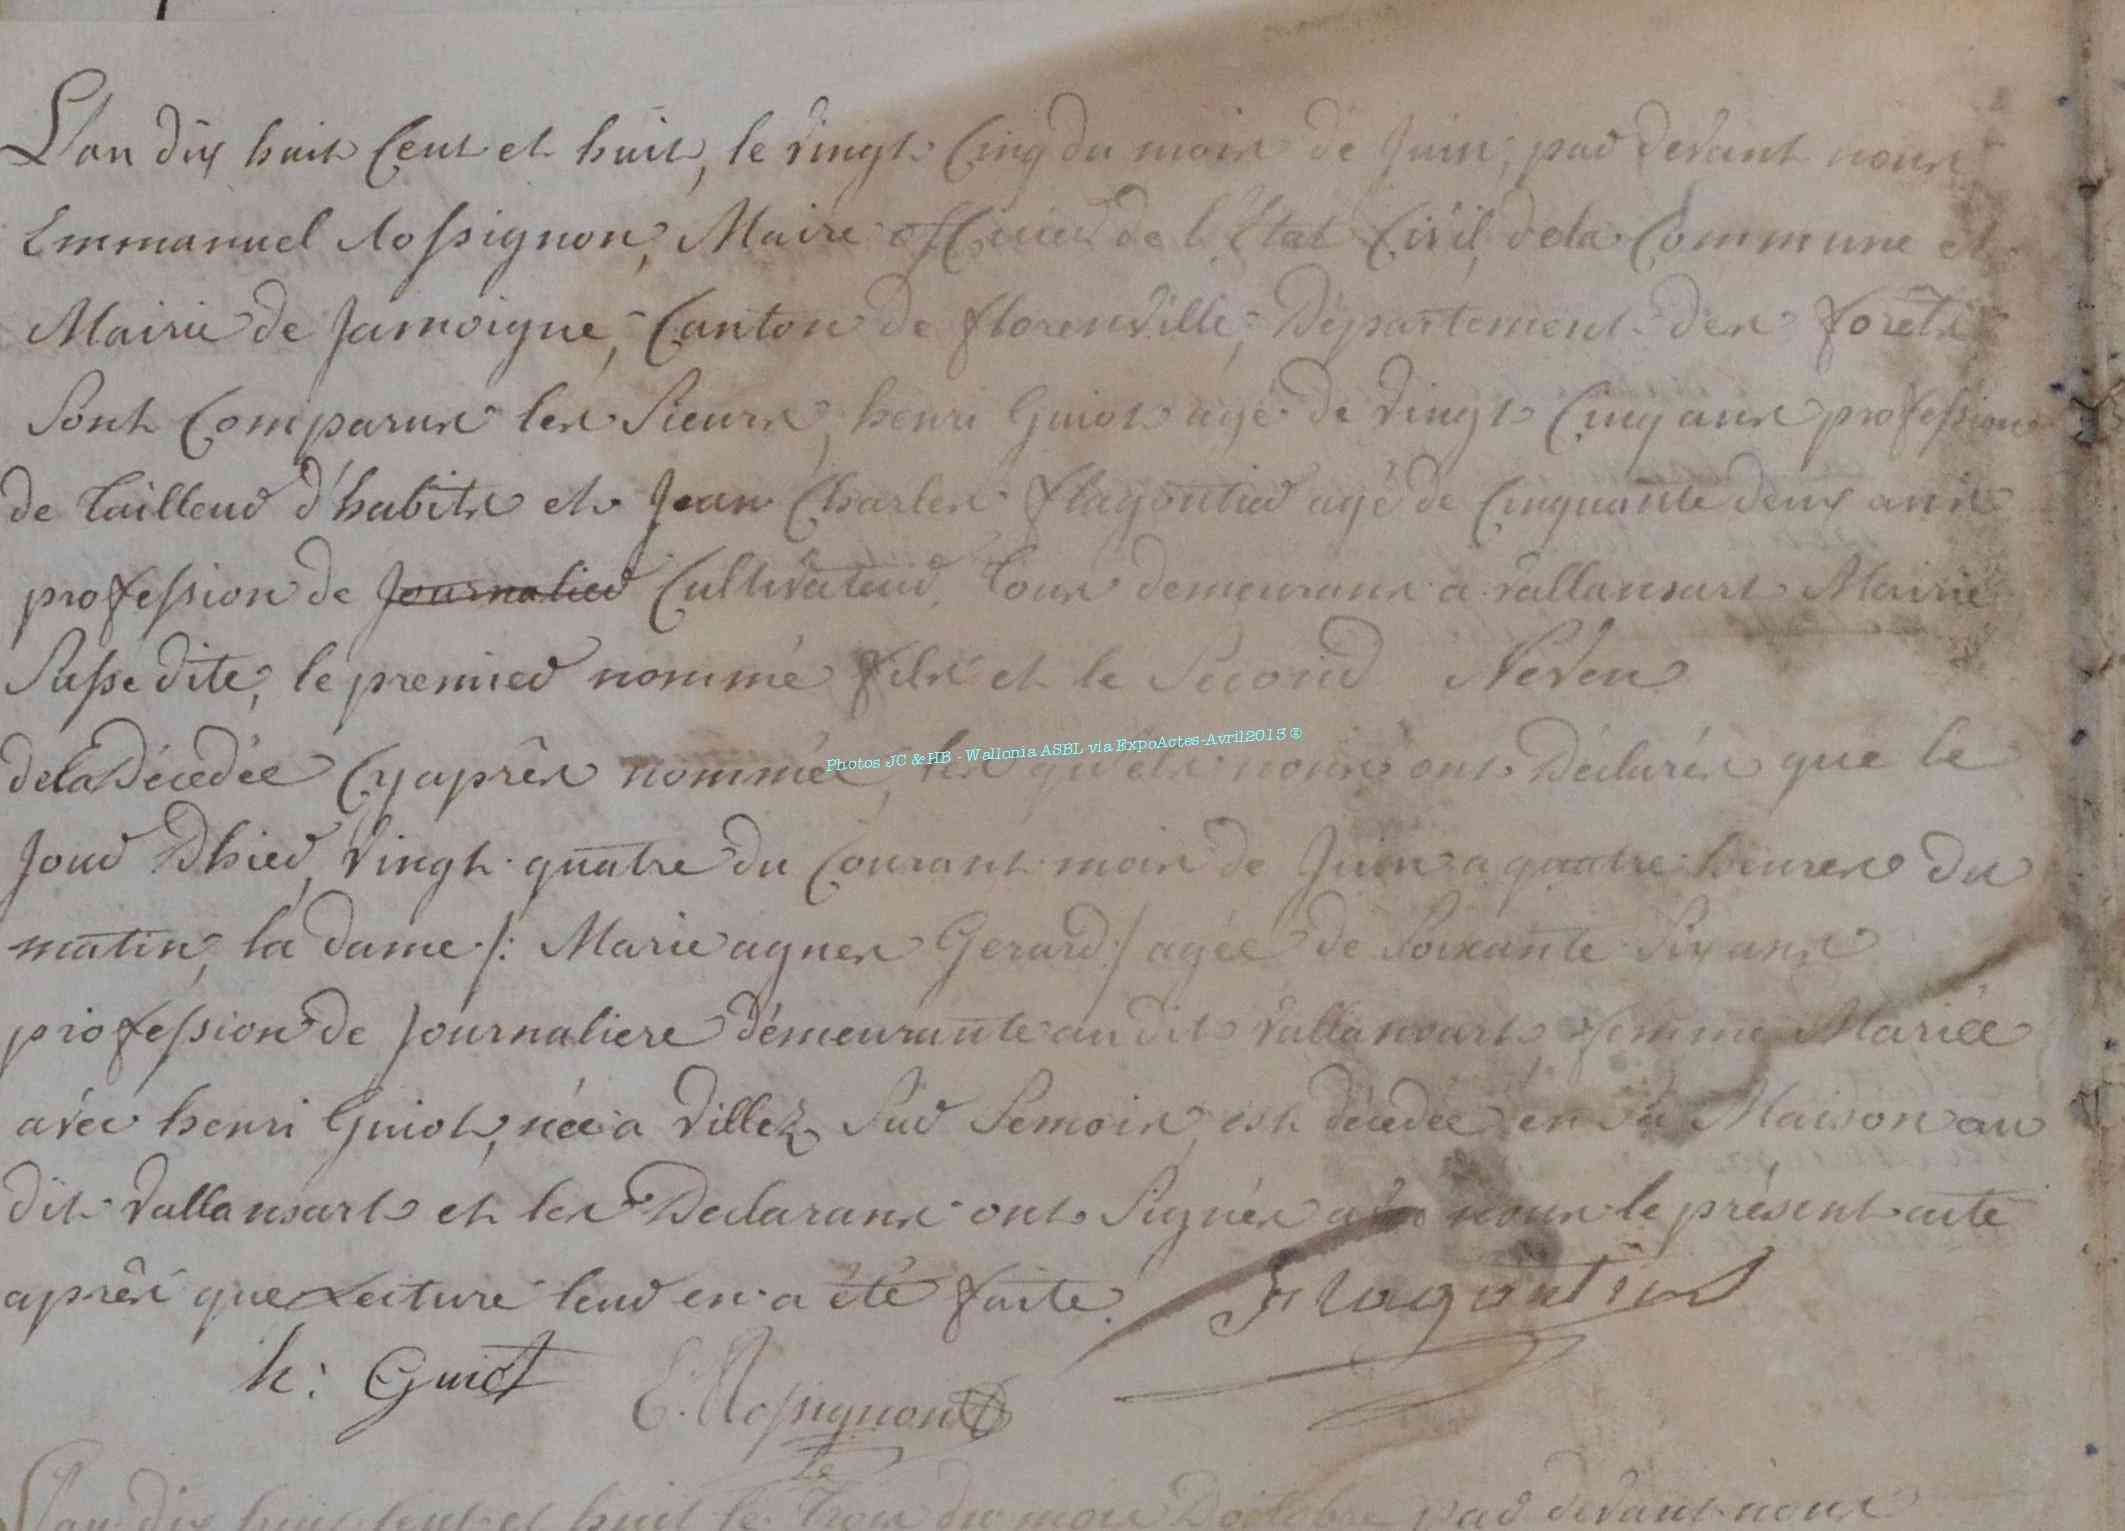 L'an dix huit Cent et huit, le vingt Cinq du mois de Juin, par devant nous
Emmanuel Rossignon, Maire officier de l'Etat Civil de la Commune et
Mairie de Jamoigne, Canton de florenville, Département des forêts
Sont Comparus les Sieurs, henri Guiot agé de vingt Cinq ans profession
de tailleur d'habits et Jean Charles flagontier agé de Cinquante deux ans
profession de Journalier Cultivateur, tous demeurans a vallansart Mairie
Susse dite, le premier nommé fils et le Second Neveu
dela Décedée Cyaprès nommé, les quels nous ont Déclarés que le
Jour Dhier, vingt quatre du Courant mois de Juin a quatre heures du
matin, la dame /: Marie agnes Gerard :/ agée de Soixante Six ans
profession de Journaliere démeurante au dit vallansart, femme Mariée
avec henri Guiot, née a Villez Sur Semois, est décedée en sa Maison au
dit vallansart et les Declarans ont Signés avec nous le présent acte
après que Lecture leur en a été faite.
Flagontier
h: Guiot
E. Rossignon
L'an dix huit Cent et huit le trois du mois D'octobre par devant nous
Photos JC & HB - Wallonia ASBL via ExpoActes-Avril2013 ©